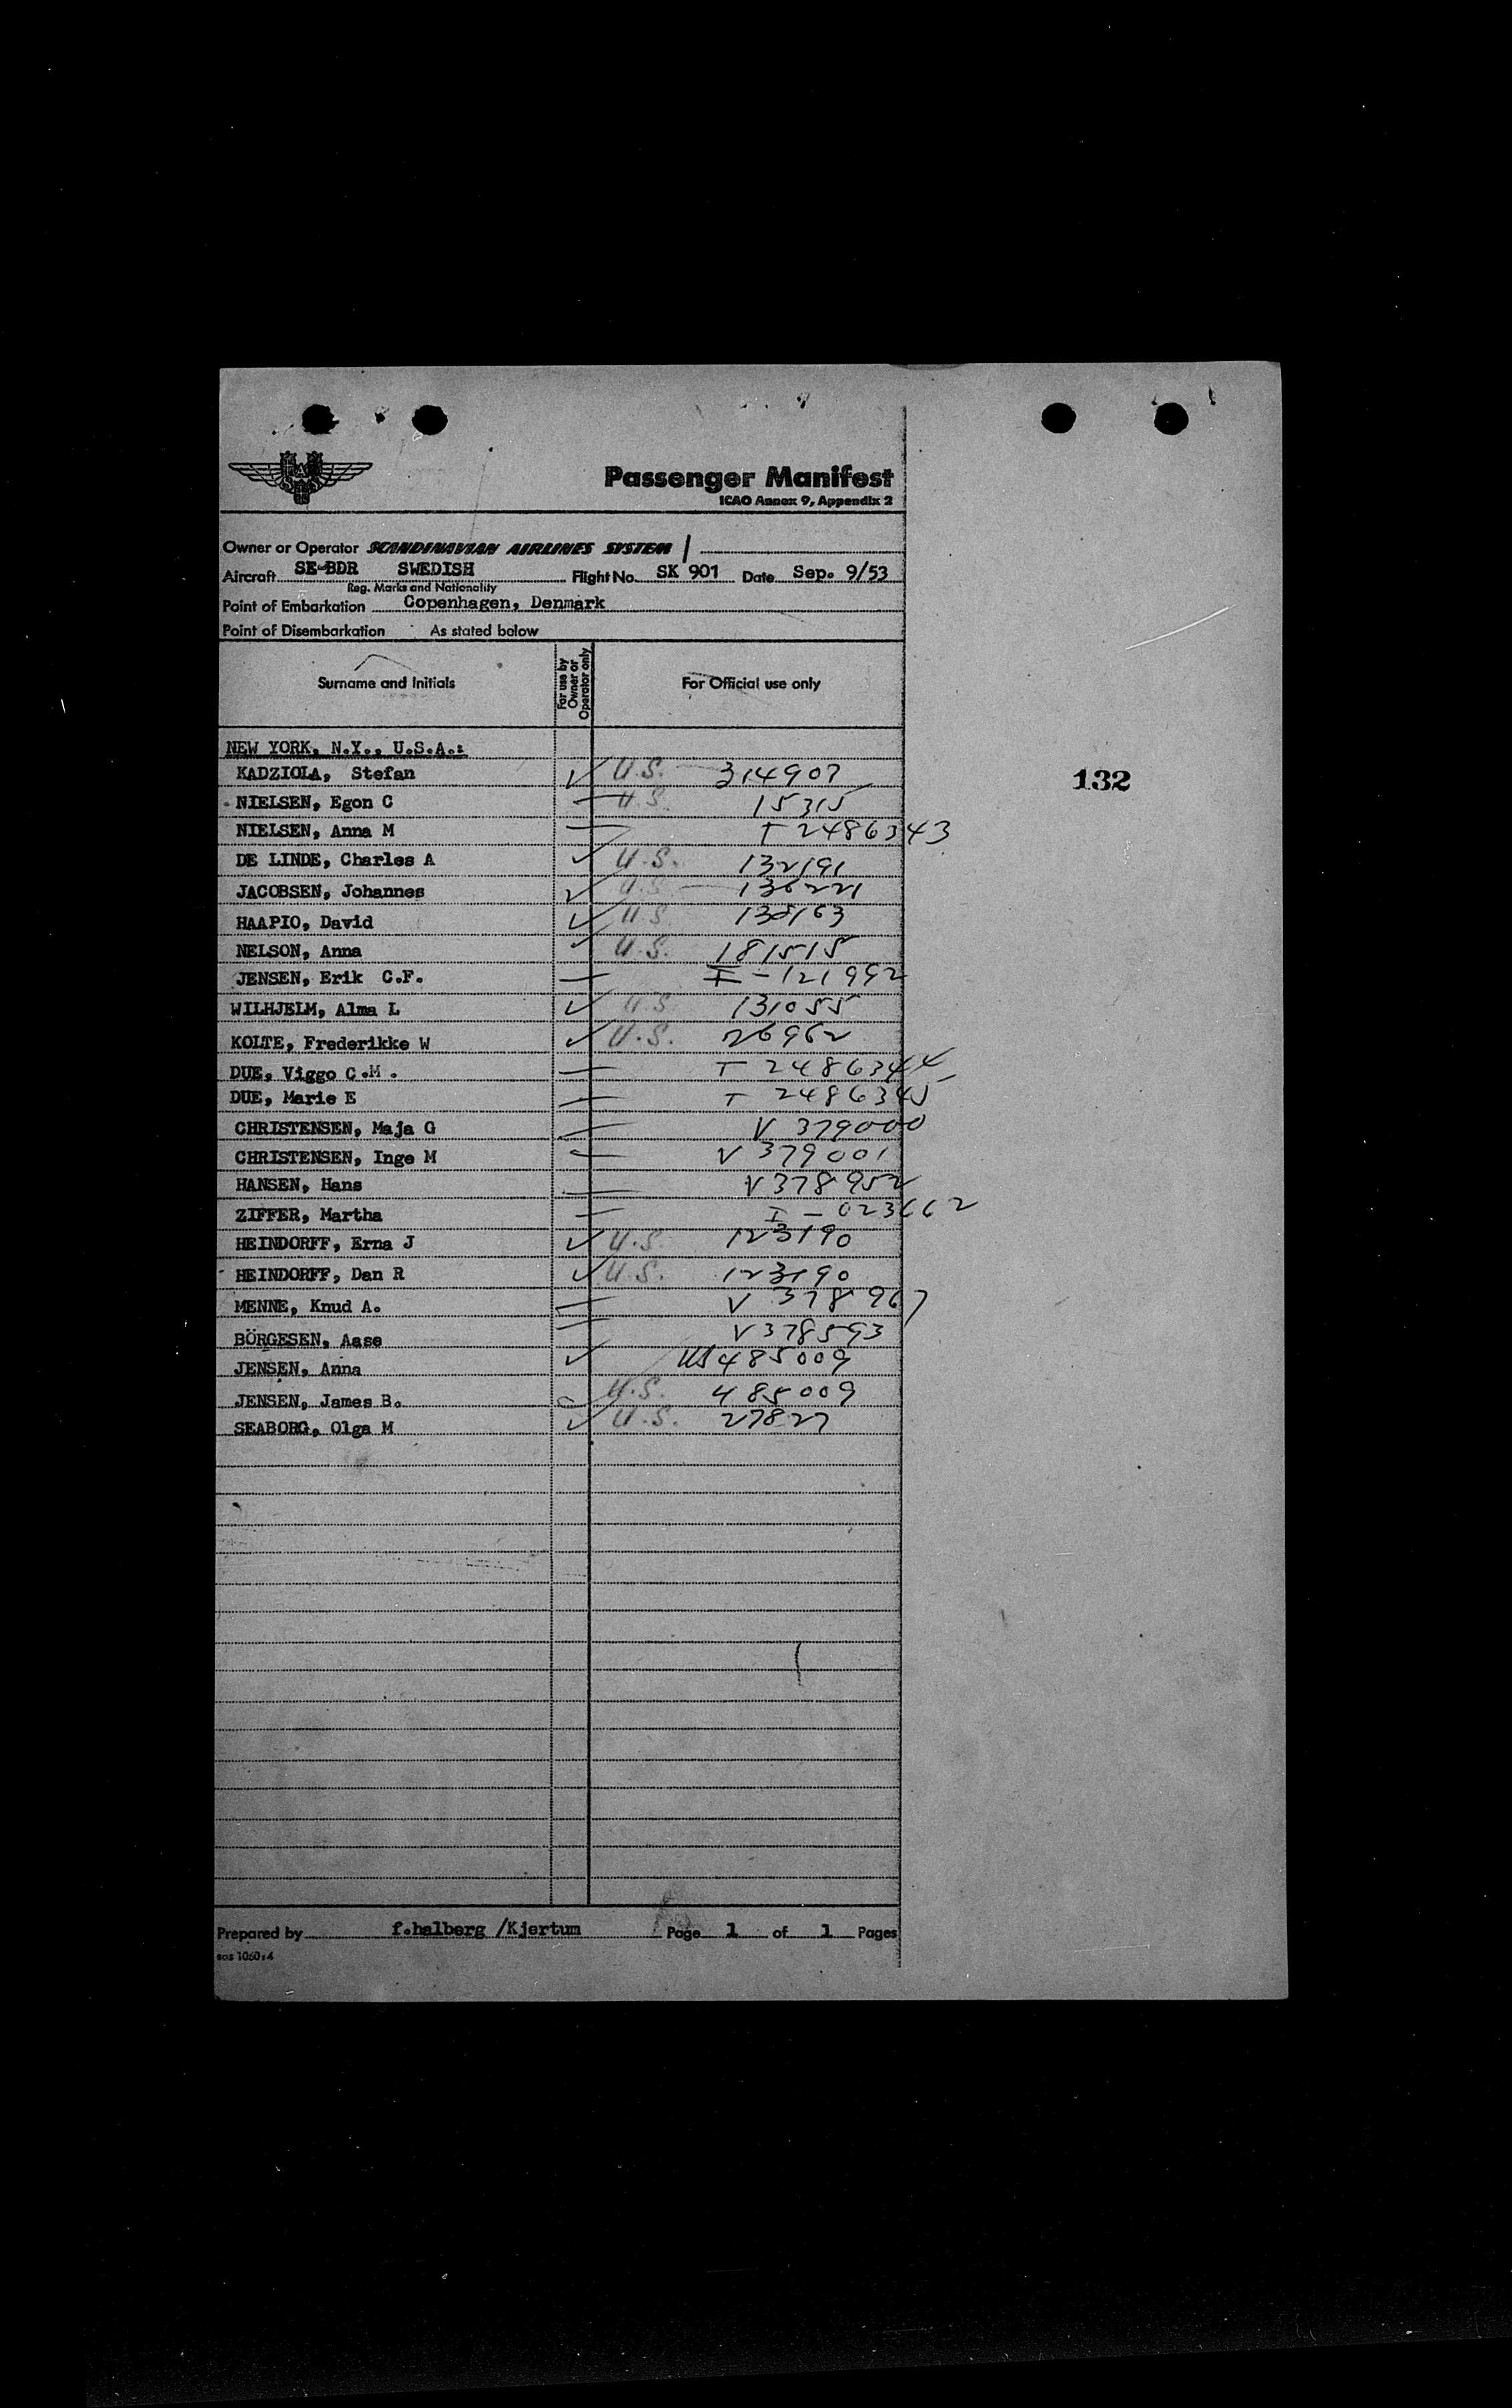 Passenger Manifest
ICAO Annex 9, Appendix 2
Owner or Operator SCANDINAVIAN AIRLINES SYSTEM
Aircraft SE-BDR SWEDISH Flight No. SK 901 Date Sep. 9/53
Reg. Marks and Nationality
Point of Embarkation Copenhagen, Denmark
Point of Disembarkation As stated below
Surname and Initials For use by Owner or Operator only For Official use only
NEW YORK, N.Y., U.S.A.:
KADZIOLA, Stefan U.S. 314907
132
NIELSEN, Egon C U.S. 15315
NIELSEN, Anna M T 2486343
DE LINDE, Charles A U.S. 132191
JACOBSEN, Johannes U.S. 136221
HAAPIO, David U.S. 138163
NELSON, Anna U.S. 181515
JENSEN, Erik C.F. I - 121992
WILHJELM, Alma L U.S. 131055
KOLTE, Frederikke W U.S. 26962
DUE, Viggo C.M. T 2486344
DUE, Marie E T 2486345
CHRISTENSEN, Maja G V 379000
CHRISTENSEN, Inge M V 379001
HANSEN, Hans V 378952
ZIFFER, Martha I - 023662
HEINDORFF, Erna J U.S. 123190
HEINDORFF, Dan R U.S. 123190
MENNE, Knud A. V 378967
BÖRGESEN, Aase V 378593
JENSEN, Anna US 485009
JENSEN, James B. U.S. 485009
SEABORG, Olga M U.S. 27827
Prepared by f.halberg /Kjertum Page 1 of 1 Pages
sas 1060:4